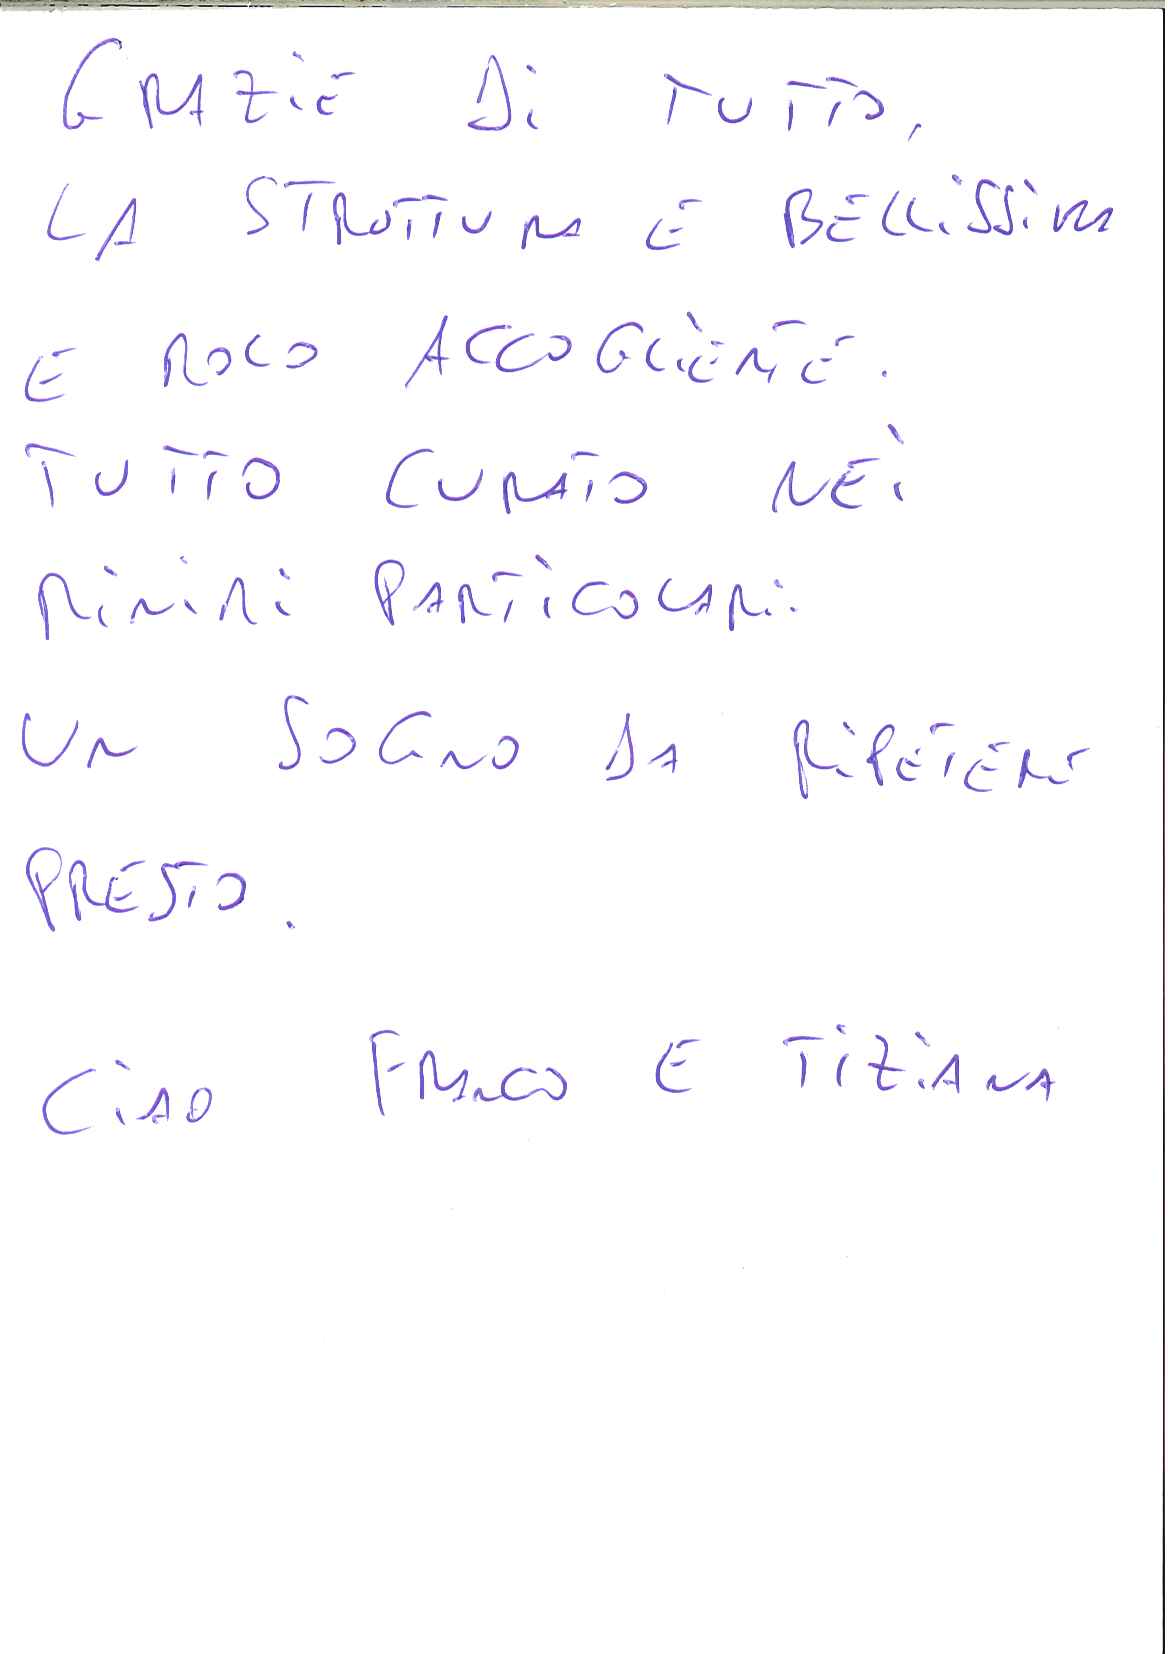 GRAZIE DI TUTTO,
LA STRUTTURA E BELLISSIMA
E MOLTO ACCOGLIENTE.
TUTTO CURATO NEI
MINIMI PARTICOLARI.
UN SOGNO DA RIPETERE
PRESTO.
CIAO FRANCO E TIZIANA